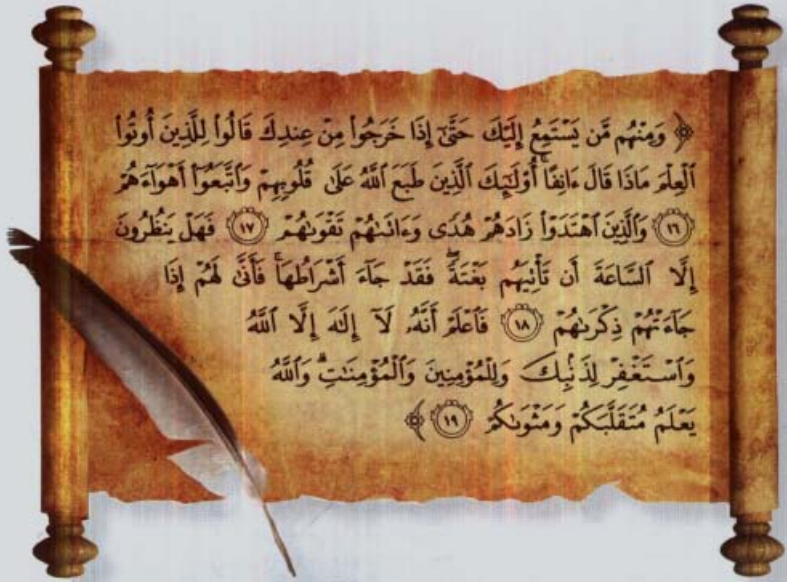 ﴿ وَمِنْهُم مَّن يَسْتَمِعُ إِلَيْكَ حَتَّىٰٓ إِذَا خَرَجُوا۟ مِنْ عِندِكَ قَالُوا۟ لِلَّذِينَ أُوتُوا۟
ٱلْعِلْمَ مَاذَا قَالَ ءَانِفًا ۚ أُو۟لَـٰٓئِكَ ٱلَّذِينَ طَبَعَ ٱللَّهُ عَلَىٰ قُلُوبِهِمْ وَٱتَّبَعُوٓا۟ أَهْوَآءَهُمْ
﴿١٦﴾ وَٱلَّذِينَ ٱهْتَدَوْا۟ زَادَهُمْ هُدًى وَءَاتَىٰهُمْ تَقْوَىٰهُمْ ﴿١٧﴾ فَهَلْ يَنظُرُونَ
إِلَّا ٱلسَّاعَةَ أَن تَأْتِيَهُم بَغْتَةً ۖ فَقَدْ جَآءَ أَشْرَاطُهَا ۚ فَأَنَّىٰ لَهُمْ إِذَا
جَآءَتْهُمْ ذِكْرَىٰهُمْ ﴿١٨﴾ فَٱعْلَمْ أَنَّهُۥ لَآ إِلَـٰهَ إِلَّا ٱللَّهُ
وَٱسْتَغْفِرْ لِذَنۢبِكَ وَلِلْمُؤْمِنِينَ وَٱلْمُؤْمِنَـٰتِ ۗ وَٱللَّهُ
يَعْلَمُ مُتَقَلَّبَكُمْ وَمَثْوَىٰكُمْ ﴿١٩﴾ ﴾